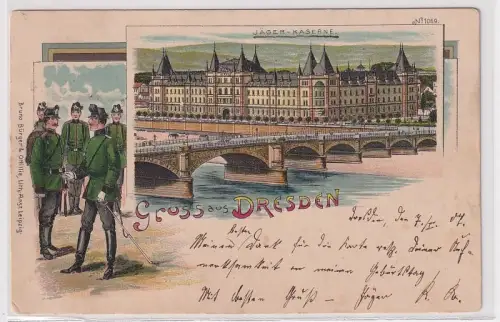 No 1059.
JÄGER-KASERNE
Bruno Bürger & Ottillie, Lith. Anst. Leipzig.
GRUSS aus DRESDEN
Dresden, den 7.
Besten
Meinen Dank für die Karte resp. Deiner Auf-
merksamkeit an meinem Geburtstag!
Mit besten Gruß – Jäger